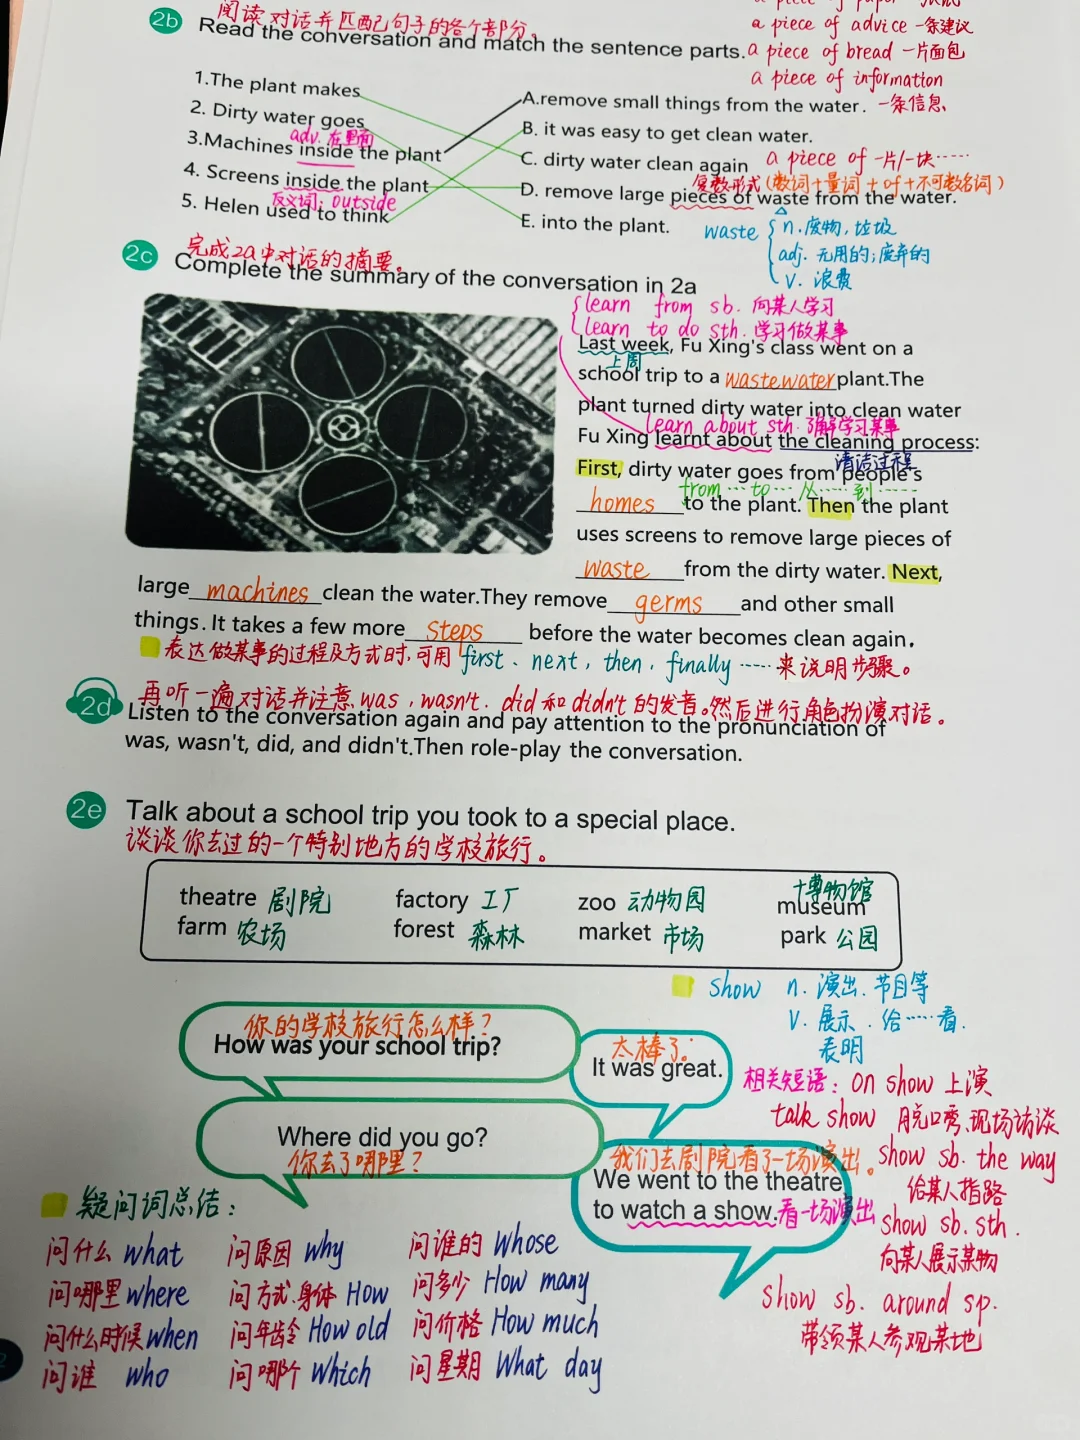 a piece of paper
a piece of advice 一条建议
2b 阅读对话并匹配句子的各个部分。
Read the conversation and match the sentence parts.
a piece of bread 一片面包
a piece of information
一条信息
1.The plant makes
2. Dirty water goes
adv. 在里面
3.Machines inside the plant
4. Screens inside the plant
反义词: outside
5. Helen used to think
A.remove small things from the water.
B. it was easy to get clean water.
C. dirty water clean again
a piece of 一片/一块……
复数形式(数词+量词+of+不可数名词)
D. remove large pieces of waste from the water.
E. into the plant.
waste n. 废物, 垃圾
adj. 无用的; 废弃的
v. 浪费
2c 完成2a中对话的摘要。
Complete the summary of the conversation in 2a
learn from sb. 向某人学习
learn to do sth. 学习做某事
Last week, Fu Xing's class went on a
上周
school trip to a wastewater plant.The
plant turned dirty water into clean water
learn about sth. 了解学习某事
Fu Xing learnt about the cleaning process:
清洁过程
First, dirty water goes from people's
from … to … 从……到……
homes to the plant. Then the plant
uses screens to remove large pieces of
waste from the dirty water. Next,
large machines clean the water.They remove germs and other small
things. It takes a few more steps before the water becomes clean again.
表达做某事的过程及方式时,可用first、next, then, finally……来说明步骤。
再听一遍对话并注意was, wasn't. did和didn't的发音。然后进行角色扮演对话。
2d Listen to the conversation again and pay attention to the pronunciation of
was, wasn't, did, and didn't.Then role-play the conversation.
2e Talk about a school trip you took to a special place.
谈谈你去过的一个特别地方的学校旅行。
theatre 剧院 factory 工厂 zoo 动物园 museum 博物馆
farm 农场 forest 森林 market 市场 park 公园
show n. 演出、节目等
v. 展示. 给……看.
表明
你的学校旅行怎么样?
How was your school trip?
太棒了.
It was great.
Where did you go?
你去了哪里?
我们去剧院看了一场演出。
We went to the theatre
to watch a show. 看一场演出
相关短语: on show 上演
talk show 脱口秀、现场访谈
show sb. the way
给某人指路
show sb. sth.
向某人展示某物
show sb. around sp.
带领某人参观某地
疑问词总结:
问什么 what 问原因 why 问谁的 Whose
问哪里 where 问方式、身体 How 问多少 How many
问什么时候 when 问年龄 How old 问价格 How much
问谁 who 问哪个 Which 问星期 What day
2